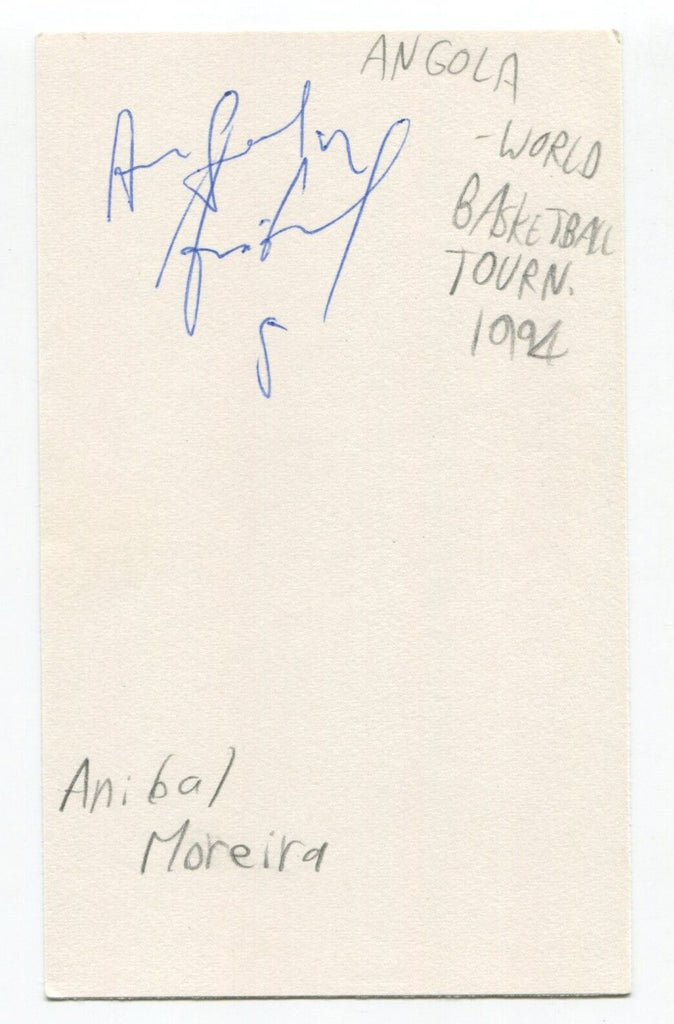 ANGOLA
-WORLD
BASKETBALL
TOURN.
1994
Angola
5
Anibal
Moreira